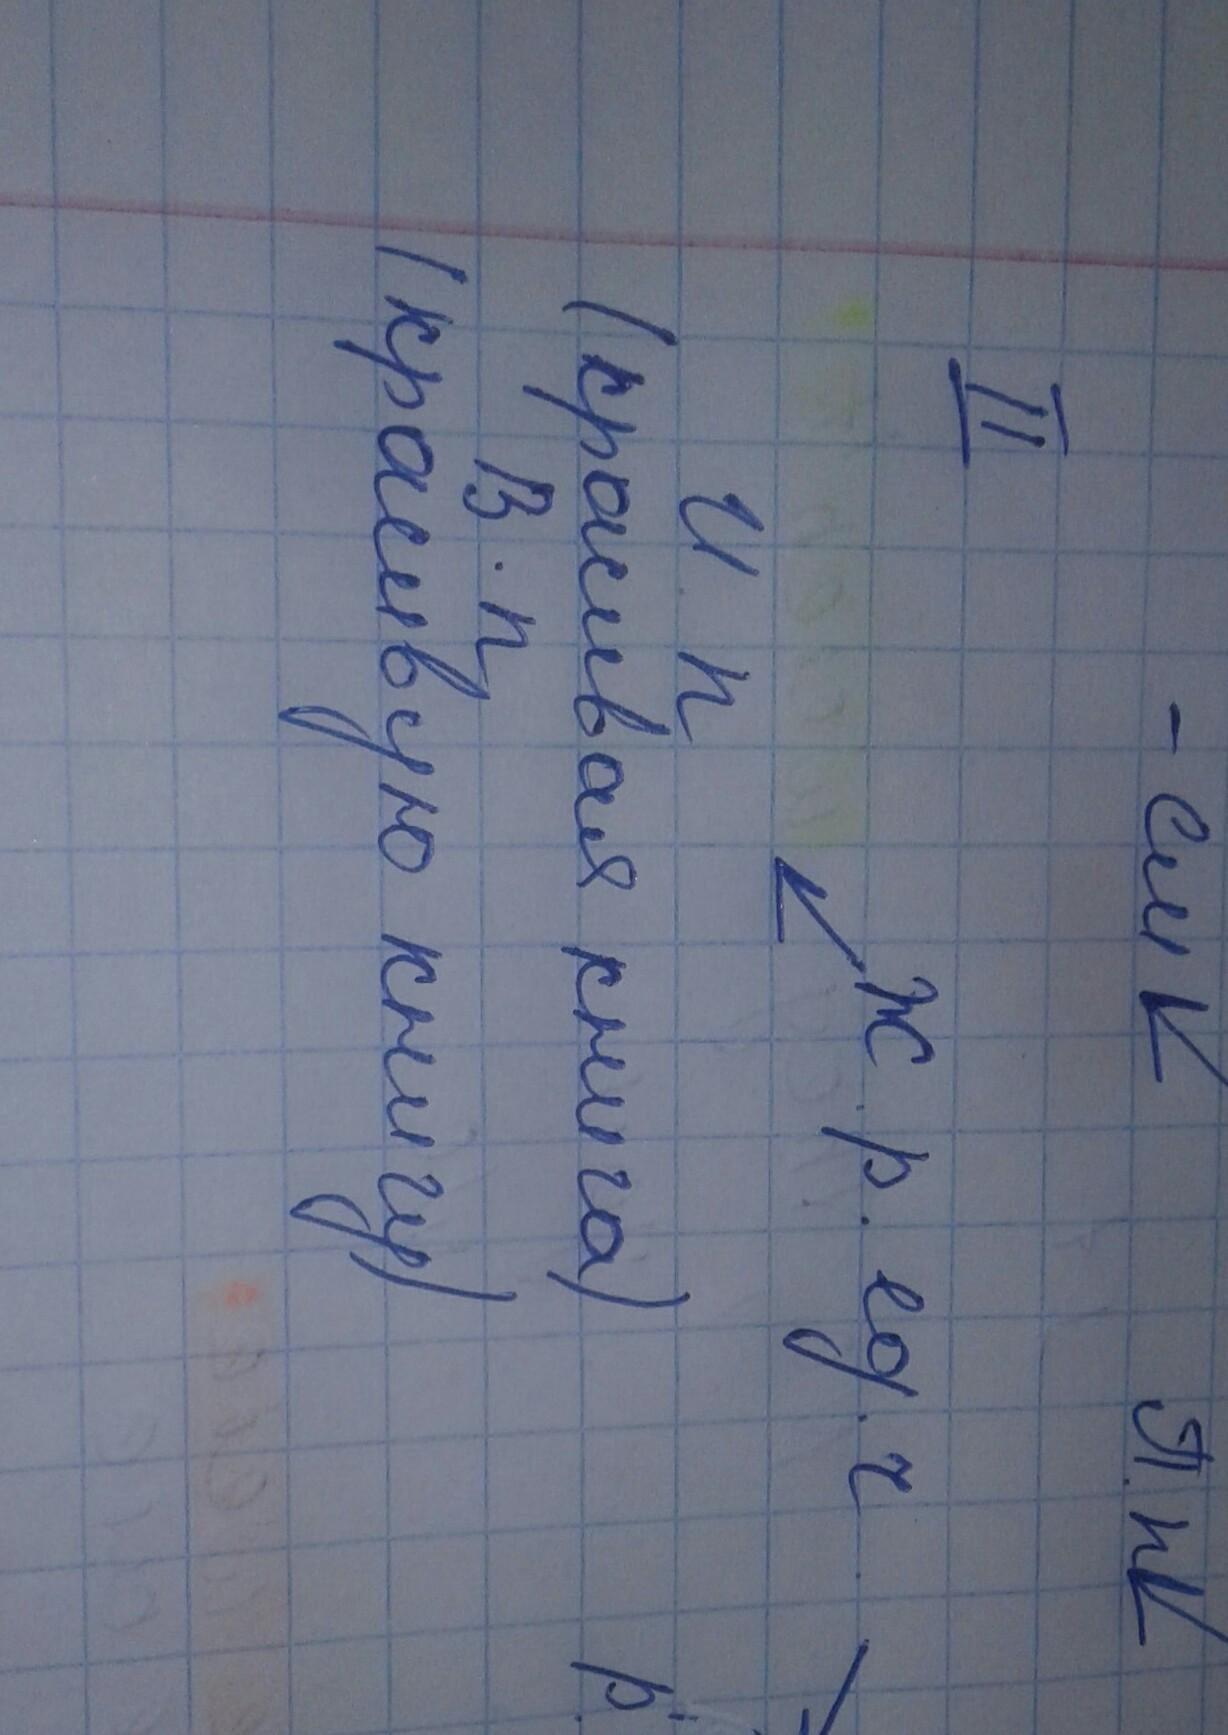 - сущ. п.п.
II
Ж.р. ед.ч.
И.п
(красивая книга)
В.п
(красивую книгу)
р.